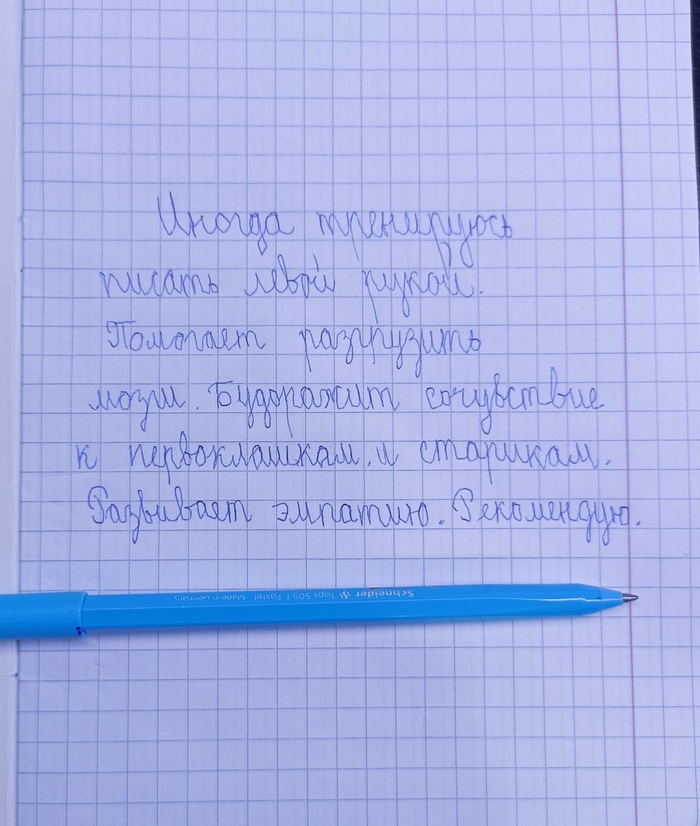 Иногда тренируюсь
писать левой рукой.
Помогает разгрузить
мозги. Будоражит сочувствие
к первоклашкам и старикам.
Развивает эмпатию. Рекомендую.
Schneider Tops 505 F Pastel Made in Germany